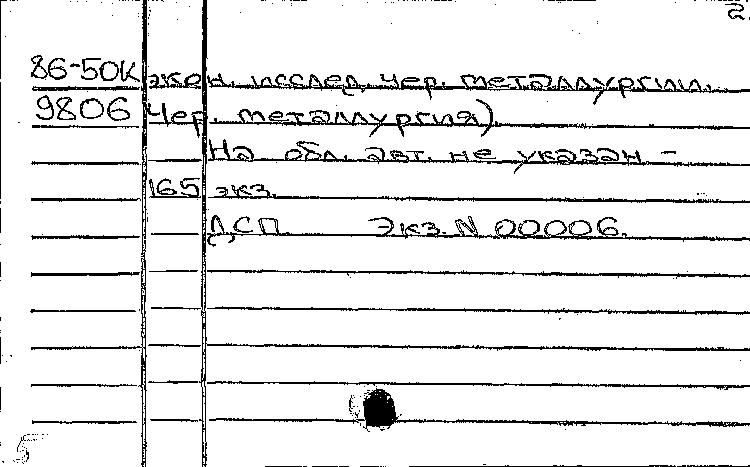 2.
86-50К экон. исслед. чер. металлургии.
9806 Чер. металлургия).
На обл. авт. не указан -
165 экз.
ДСП. Экз. N 00006.
5